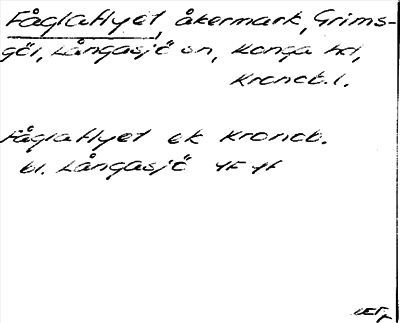 Fåglaflyet, åkermark, Grims-
göl, Långasjö sn, Konga hd,
Kronob. l.
Fåglaflyet ek Kronob.
bl. Långasjö 4F 4f